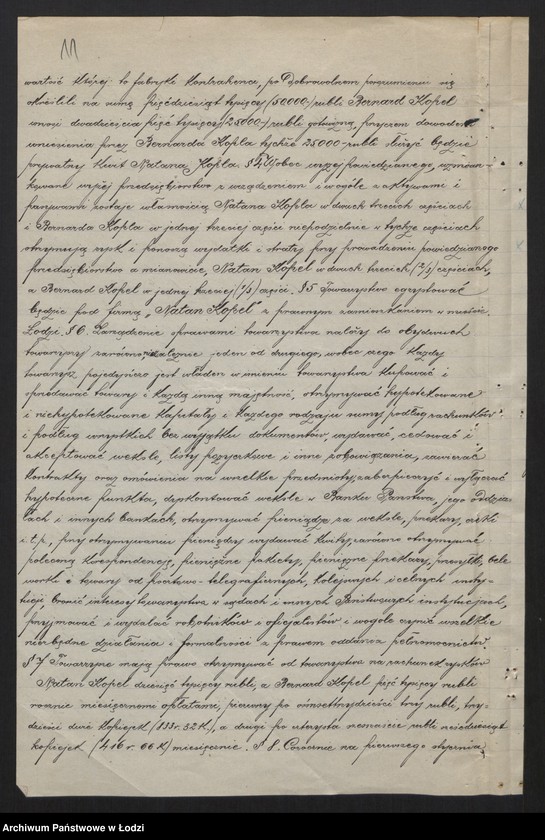 11
wartość której to fabryki kontrahenci, po dobrowolnem porozumieniu się
określili na sumę pięćdziesiąt tysięcy (50000-) rubli Bernard Kopel
wnosi dwadzieścia pięć tysięcy (25000-) rubli gotowizną, przyczem dowodem
wniesienia przez Bernarda Kopla tychże 25000- rubli służyć będzie
prywatny kwit Natana Kopla. § 4 Wobec wyżej powiedzianego, wzmian-
kowane wyżej przedsiębiorstwo z urządzeniem i wogóle z aktywami i
pasywami zostaje własnością Natana Kopla w dwuch trzecich częściach
i Bernarda Kopla w jednej trzeciej części niepodzielnie w tychże częściach
otrzymują zysk i ponoszą wydatki i straty przy prowadzeniu powiedzianego
przedsiębiorstwa a mianowicie, Natan Kopel w dwuch trzecich (2/3) częściach,
a Bernard Kopel w jednej trzeciej (1/3) części. § 5 Towarzystwo egzystować
będzie pod firmą "Natan Kopel" z prawnym zamieszkaniem w mieście
Łodzi § 6. Zarządzenie sprawami towarzystwa należy do obydwuch
towarzyszy zarówno niezależnie jeden od drugiego, wobec czego każdy
towarzysz pojedyńczo jest właden w imieniu towarzystwa kupować i
sprzedawać towary i każdą inną majętność, otrzymywać hypotekowane
i niehypotekowane kapitały i każdego rodzaju sumy podług rachunków
i podług wszystkich bez wyjątku dokumentów, wydawać, cedować i
akceptować weksle, listy pożyczkowe i inne zobowiązania, zawierać
kontrakty oraz umówienia na wszelkie przedmioty, zabezpieczyć i wyłączać
hypoteczne punkta, dyskontować weksle w Banku Państwa, jego oddzia-
łach i innych bankach, otrzymywać pieniądze za weksle, przekazy, czeki
i t.p., przy otrzymywaniu pieniędzy wydawać kwity, zarówno otrzymywać
poleconą korespondencję, pieniężne pakiety, pieniężne przekazy, przesyłki, bele
worki i towary od pocztowo-telegraficznych, kolejowych i celnych insty-
tucji bronić interesy towarzystwa w sądach i innych Państwowych instytucjach,
przyjmować i wydalać robotników i oficjalistów i wogóle czynić wszelkie
niezbędne działania i formalności z prawem oddania pełnomocnictw.
§ 7 Towarzysze mają prawo otrzymywać od towarzystwa na rachunek zysków
Natan Kopel dziesięć tysięcy rubli, a Bernard Kopel pięć tysięcy rubli
rocznie miesięcznem opłatami, pierwszy po ośmset trzydzieści trzy ruble, trzy-
dzieści dwie kopiejek (833 r. 32 K.), a drugi po czterysta szesnaście rubli sześćdziesiąt
kopiejek (416 r. 66 K) miesięcznie. § 8. Corocznie na pierwszego stycznia
Archiwum Państwowe w Łodzi